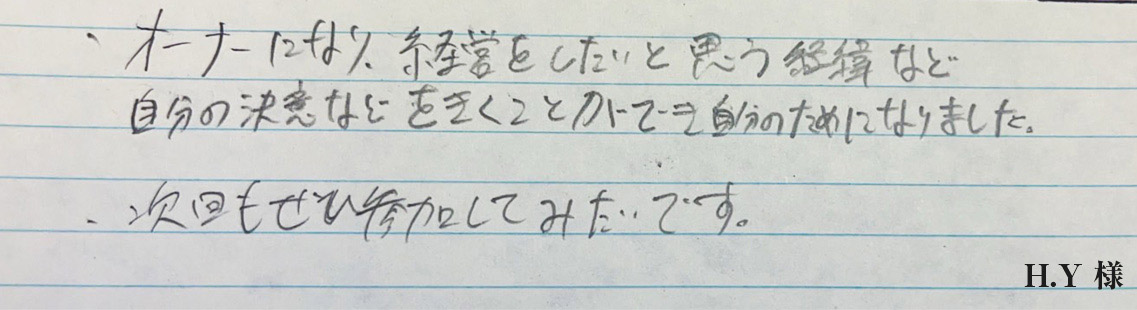 ・オーナーになり、経営をしたいと思う経緯など
自分の決意などをきくことができ自分のためになりました。
・次回もぜひ参加してみたいです。
H.Y 様